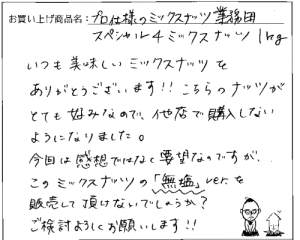 お買い上げ商品名：プロ仕様のミックスナッツ 業務用
スペシャル4ミックスナッツ 1kg
いつも美味しいミックスナッツを
ありがとうございます!! こちらのナッツが
とても好みなので、他店で購入しない
ようになりました。
今回は感想ではなく要望なのですが、
このミックスナッツの「無塩」ver.を
販売して頂けないでしょうか？
ご検討よろしくお願いします!!